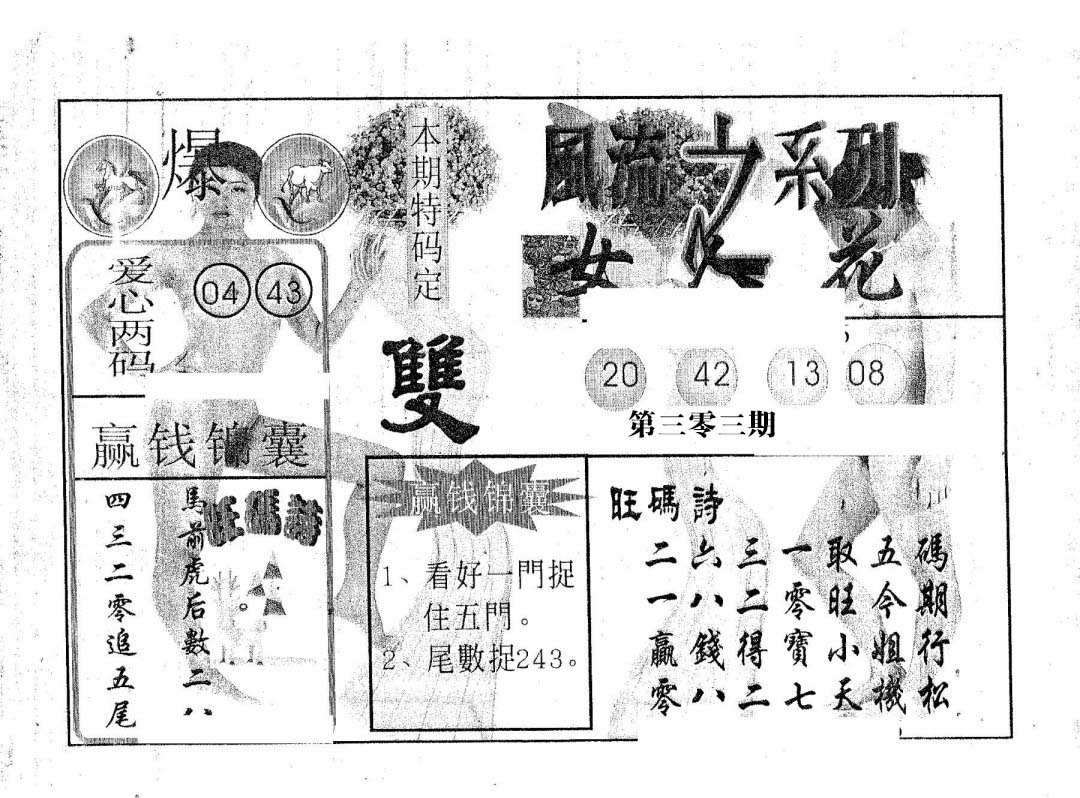 爆
爱心两码
04 43
赢钱锦囊
旺碼詩
馬前虎后數二八。
四三二零追五尾
本期特码定
雙
風流之系列
女人花
20 42 13 08
第三零三期
赢钱锦囊
1、看好一門捉
住五門。
2、尾數捉243。
旺碼詩
二六三一取五碼
一八二零旺今期
贏錢得寶小姐行
零八二七天機松